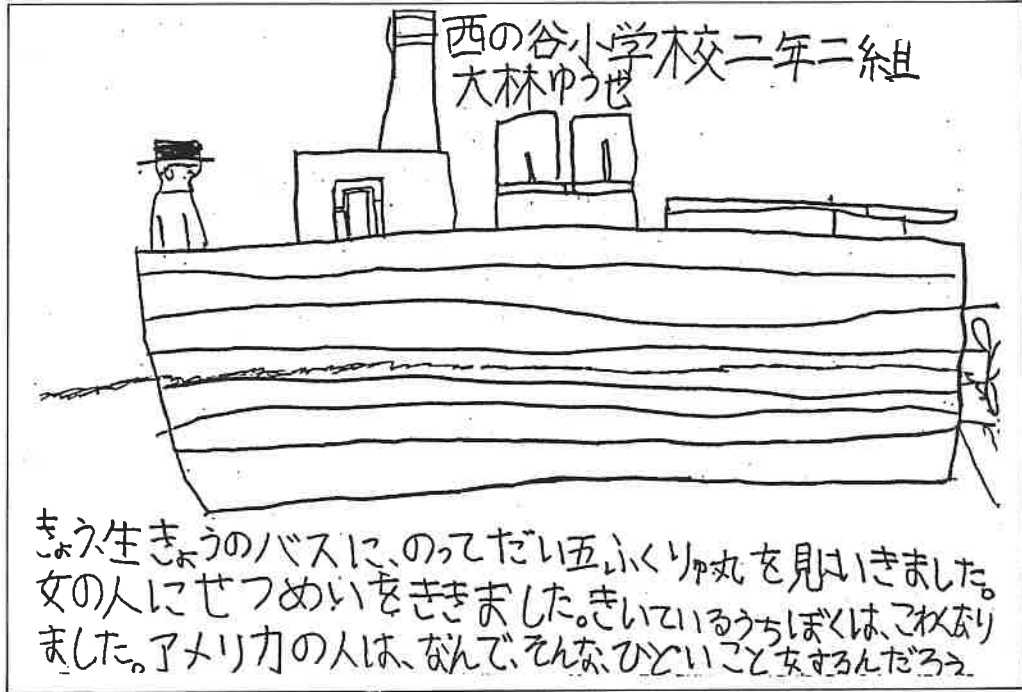 西の谷小学校二年二組
大林ゆうせ
きょう、生きょうのバスに、のってだい五ふくりゅ丸を見にいきました。
女の人にせつめいをききました。きいているうちぼくは、こわくなり
ました。アメリカの人は、なんで、そんな、ひどいことをするんだろう